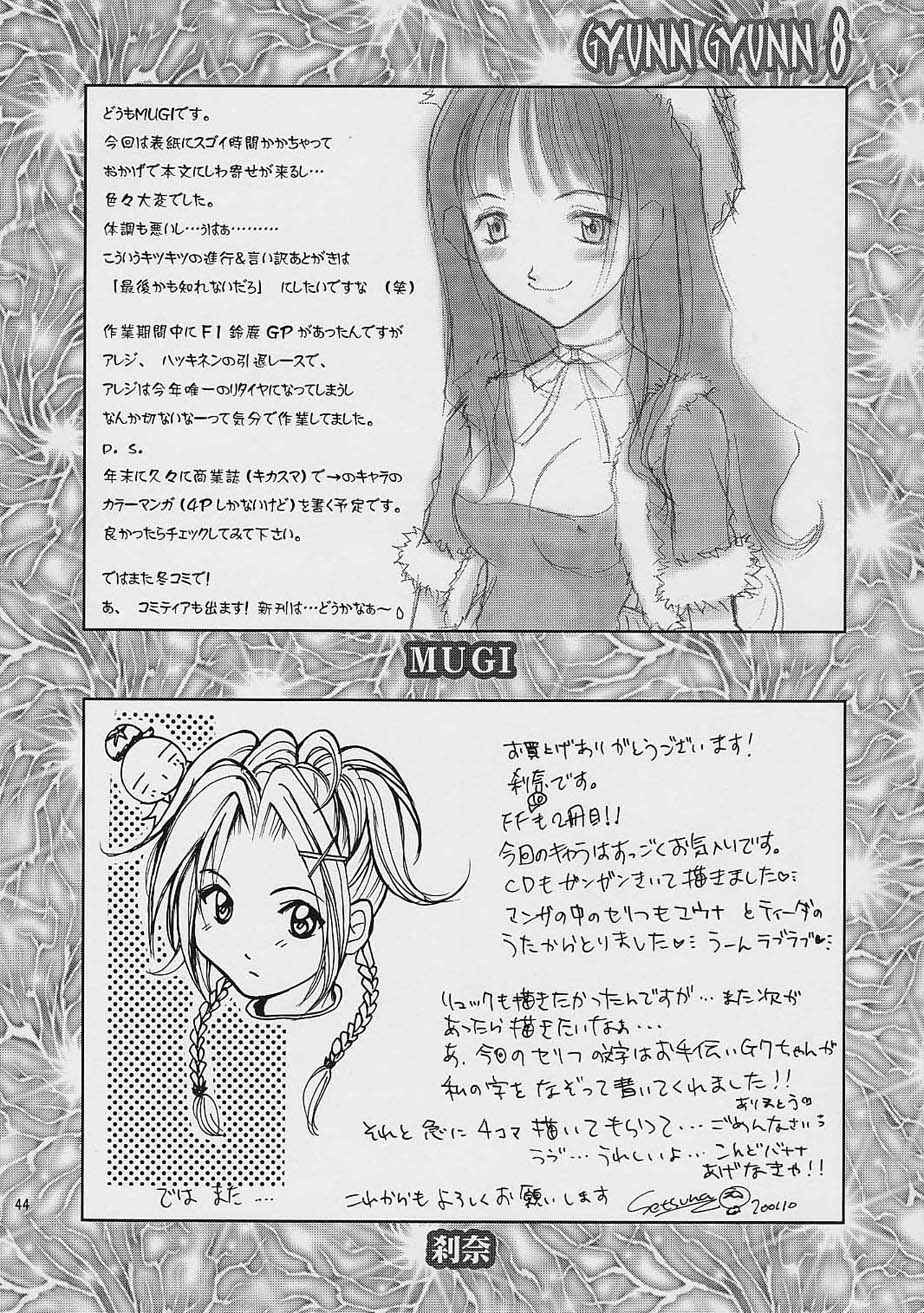 GYUNN GYUNN 8
どうもMUGIです。
今回は表紙にスゴイ時間かかちゃって
おかげで本文にしわ寄せが来るし…
色々大変でした。
体調も悪いし…うはぁ………
こういうキツキツの進行&言い訳あとがきは
「最後かも知れないだろ」にしたいですな (笑)
作業期間中にF1鈴鹿GPがあったんですが
アレジ、ハッキネンの引退レースで、
アレジは今年唯一のリタイヤになってしまうし
なんか切ないなーって気分で作業してました。
P.S.
年末に久々に商業誌(キカスマ)で→のキャラの
カラーマンガ(4Pしかないけど)を書く予定です。
良かったらチェックしてみて下さい。
ではまた冬コミで!
あ、コミティアも出ます! 新刊は…どうかなぁ～
MUGI
お買上げありがとうございます!
刹奈です。
FF⑩も2冊目!!
今回のキャラはすっごくお気入りです。
CDもガンガンきいて描きました♡
マンガの中のせりつもユウナとティーダの
うたからとりました♡ うーんラブラブ♡
リュックも描きたかったんですが…また次が
あったら描きたいなぁ…
あ、今回のせりつの字はお手伝いGクちゃんが
私の字をなぞって書いてくれました!!
ありがとう
それと急に4コマ描いてもらって…ごめんなさい
うづ…うれしいよ…こんどバナナ
あげなきゃ!!
では また …. これからもよろしくお願いします
Setsuna 2001.10
44
刹奈